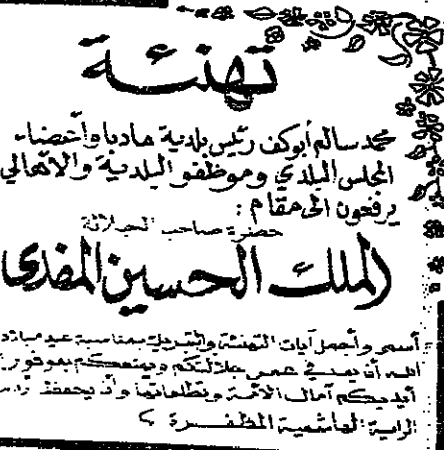 تهنئة
محمد سالم أبوكف رئيس بلدية مادبا وأعضاء
المجلس البلدي وموظفو البلدية والأهالي
يرفعون الى مقام :
حضرة صاحب الجلالة
الملك الحسين المفدى
أسمى وأجمل آيات التهنئة والتبريك بمناسبة عيد ميلاد
الله أن يمد في عمر جلالتكم ويمتعكم بموفور
أيديكم آمال الأمة وتطلعاتها وأن يحفظ
الراية الهاشمية المظفرة